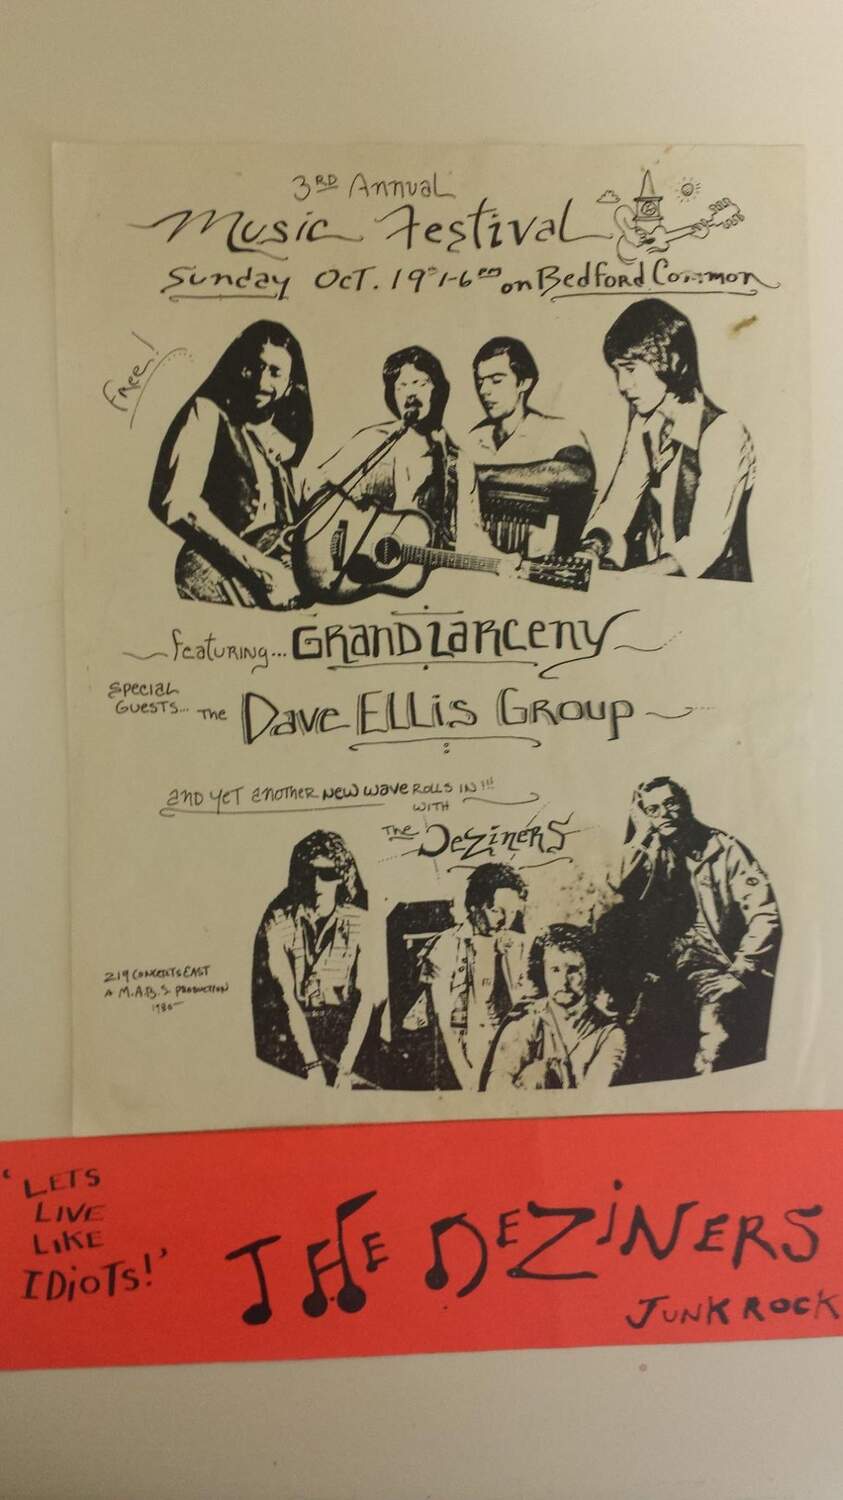 3RD Annual
Music Festival
Sunday Oct. 19th 1-6 pm on Bedford Common
Free!
featuring... Grand Larceny
Special
Guests... The Dave Ellis Group
and yet another new wave rolls in!!!
with
The Deziners
219 Concerts East
A M.A.B.S. Production
1980
'LETS
LIVE
LIKE
IDiOTS!'
THE DEZiNERS
JUNK ROCK